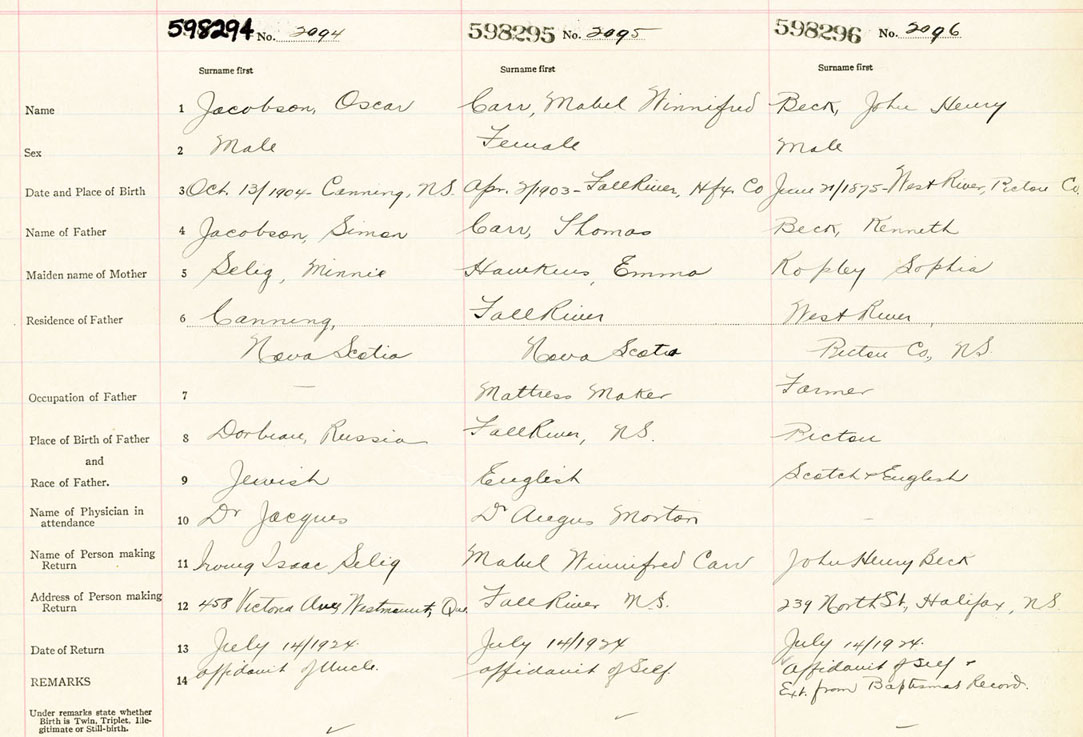 598294 No. 2094 598295 No. 2095 598296 No. 2096
Surname first Surname first Surname first
Name 1 Jacobson, Oscar Carr, Mabel Winnifred Beck, John Henry
Sex 2 Male Female Male
Date and Place of Birth 3 Oct. 13/1904 - Canning, N.S. Apr. 2/1903 - Fall River, Hfx. Co June 21/1875 - West River, Pictou Co.
Name of Father 4 Jacobson, Simon Carr, Thomas Beck, Kenneth
Maiden name of Mother 5 Selig, Minnie Hawkins, Emma Kopley Sophia
Residence of Father 6 Canning, Fall River West River,
Nova Scotia Nova Scotia Pictou Co., N.S.
Occupation of Father 7 — Mattress Maker Farmer
Place of Birth of Father 8 Dorbian, Russia Fall River, N.S. Pictou
and
Race of Father. 9 Jewish English Scotch & English
Name of Physician in
attendance 10 Dr Jacques Dr Angus Morton —
Name of Person making
Return 11 Irving Isaac Selig Mabel Winnifred Carr John Henry Beck
Address of Person making
Return 12 458 Victoria Ave, Westmount, Que. Fall River N.S. 239 North St., Halifax, N.S.
Date of Return 13 July 14/1924. July 14/1924 July 14/1924.
REMARKS 14 affidavit of Uncle. affidavit of Self Affidavit of Self &
Ext. from Baptismal Record.
Under remarks state whether
Birth is Twin, Triplet, Ille-
gitimate or Still-birth. ✓ ✓ —